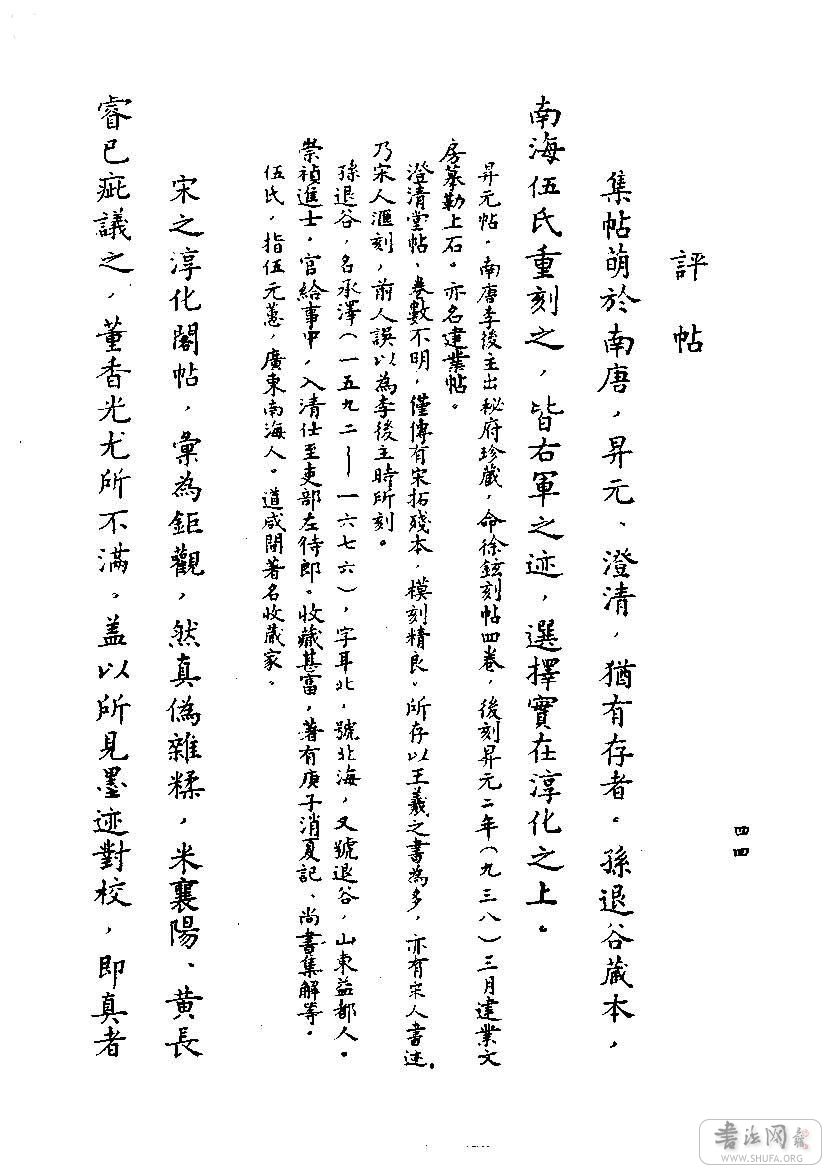 評帖
集帖萌於南唐，昇元、澄清，猶有存者。孫退谷藏本，
南海伍氏重刻之，皆右軍之迹，選擇實在淳化之上。
昇元帖，南唐李後主出秘府珍藏，命徐鉉刻帖四卷，後刻昇元二年（九三八）三月建業文
房摹勒上石。亦名建業帖。
澄清堂帖、卷數不明，僅傳有宋拓殘本，模刻精良。所存以王羲之書為多，亦有宋人書迹。
乃宋人滙刻，前人誤以為李後主時所刻。
孫退谷，名承澤（一五九二—一六七六），字耳北，號北海，又號退谷，山東益都人。
崇禎進士，官給事中，入清仕至吏部左侍郎。收藏甚富，著有庚子消夏記、尚書集解等。
伍氏，指伍元蕙，廣東南海人。道咸間著名收藏家。
宋之淳化閣帖，彙為鉅觀，然真偽雜糅，米襄陽、黃長
睿已疵議之，董香光尤所不滿。盖以所見墨迹對校，即真者
四四
書法网
WWW.SHUFA.ORG